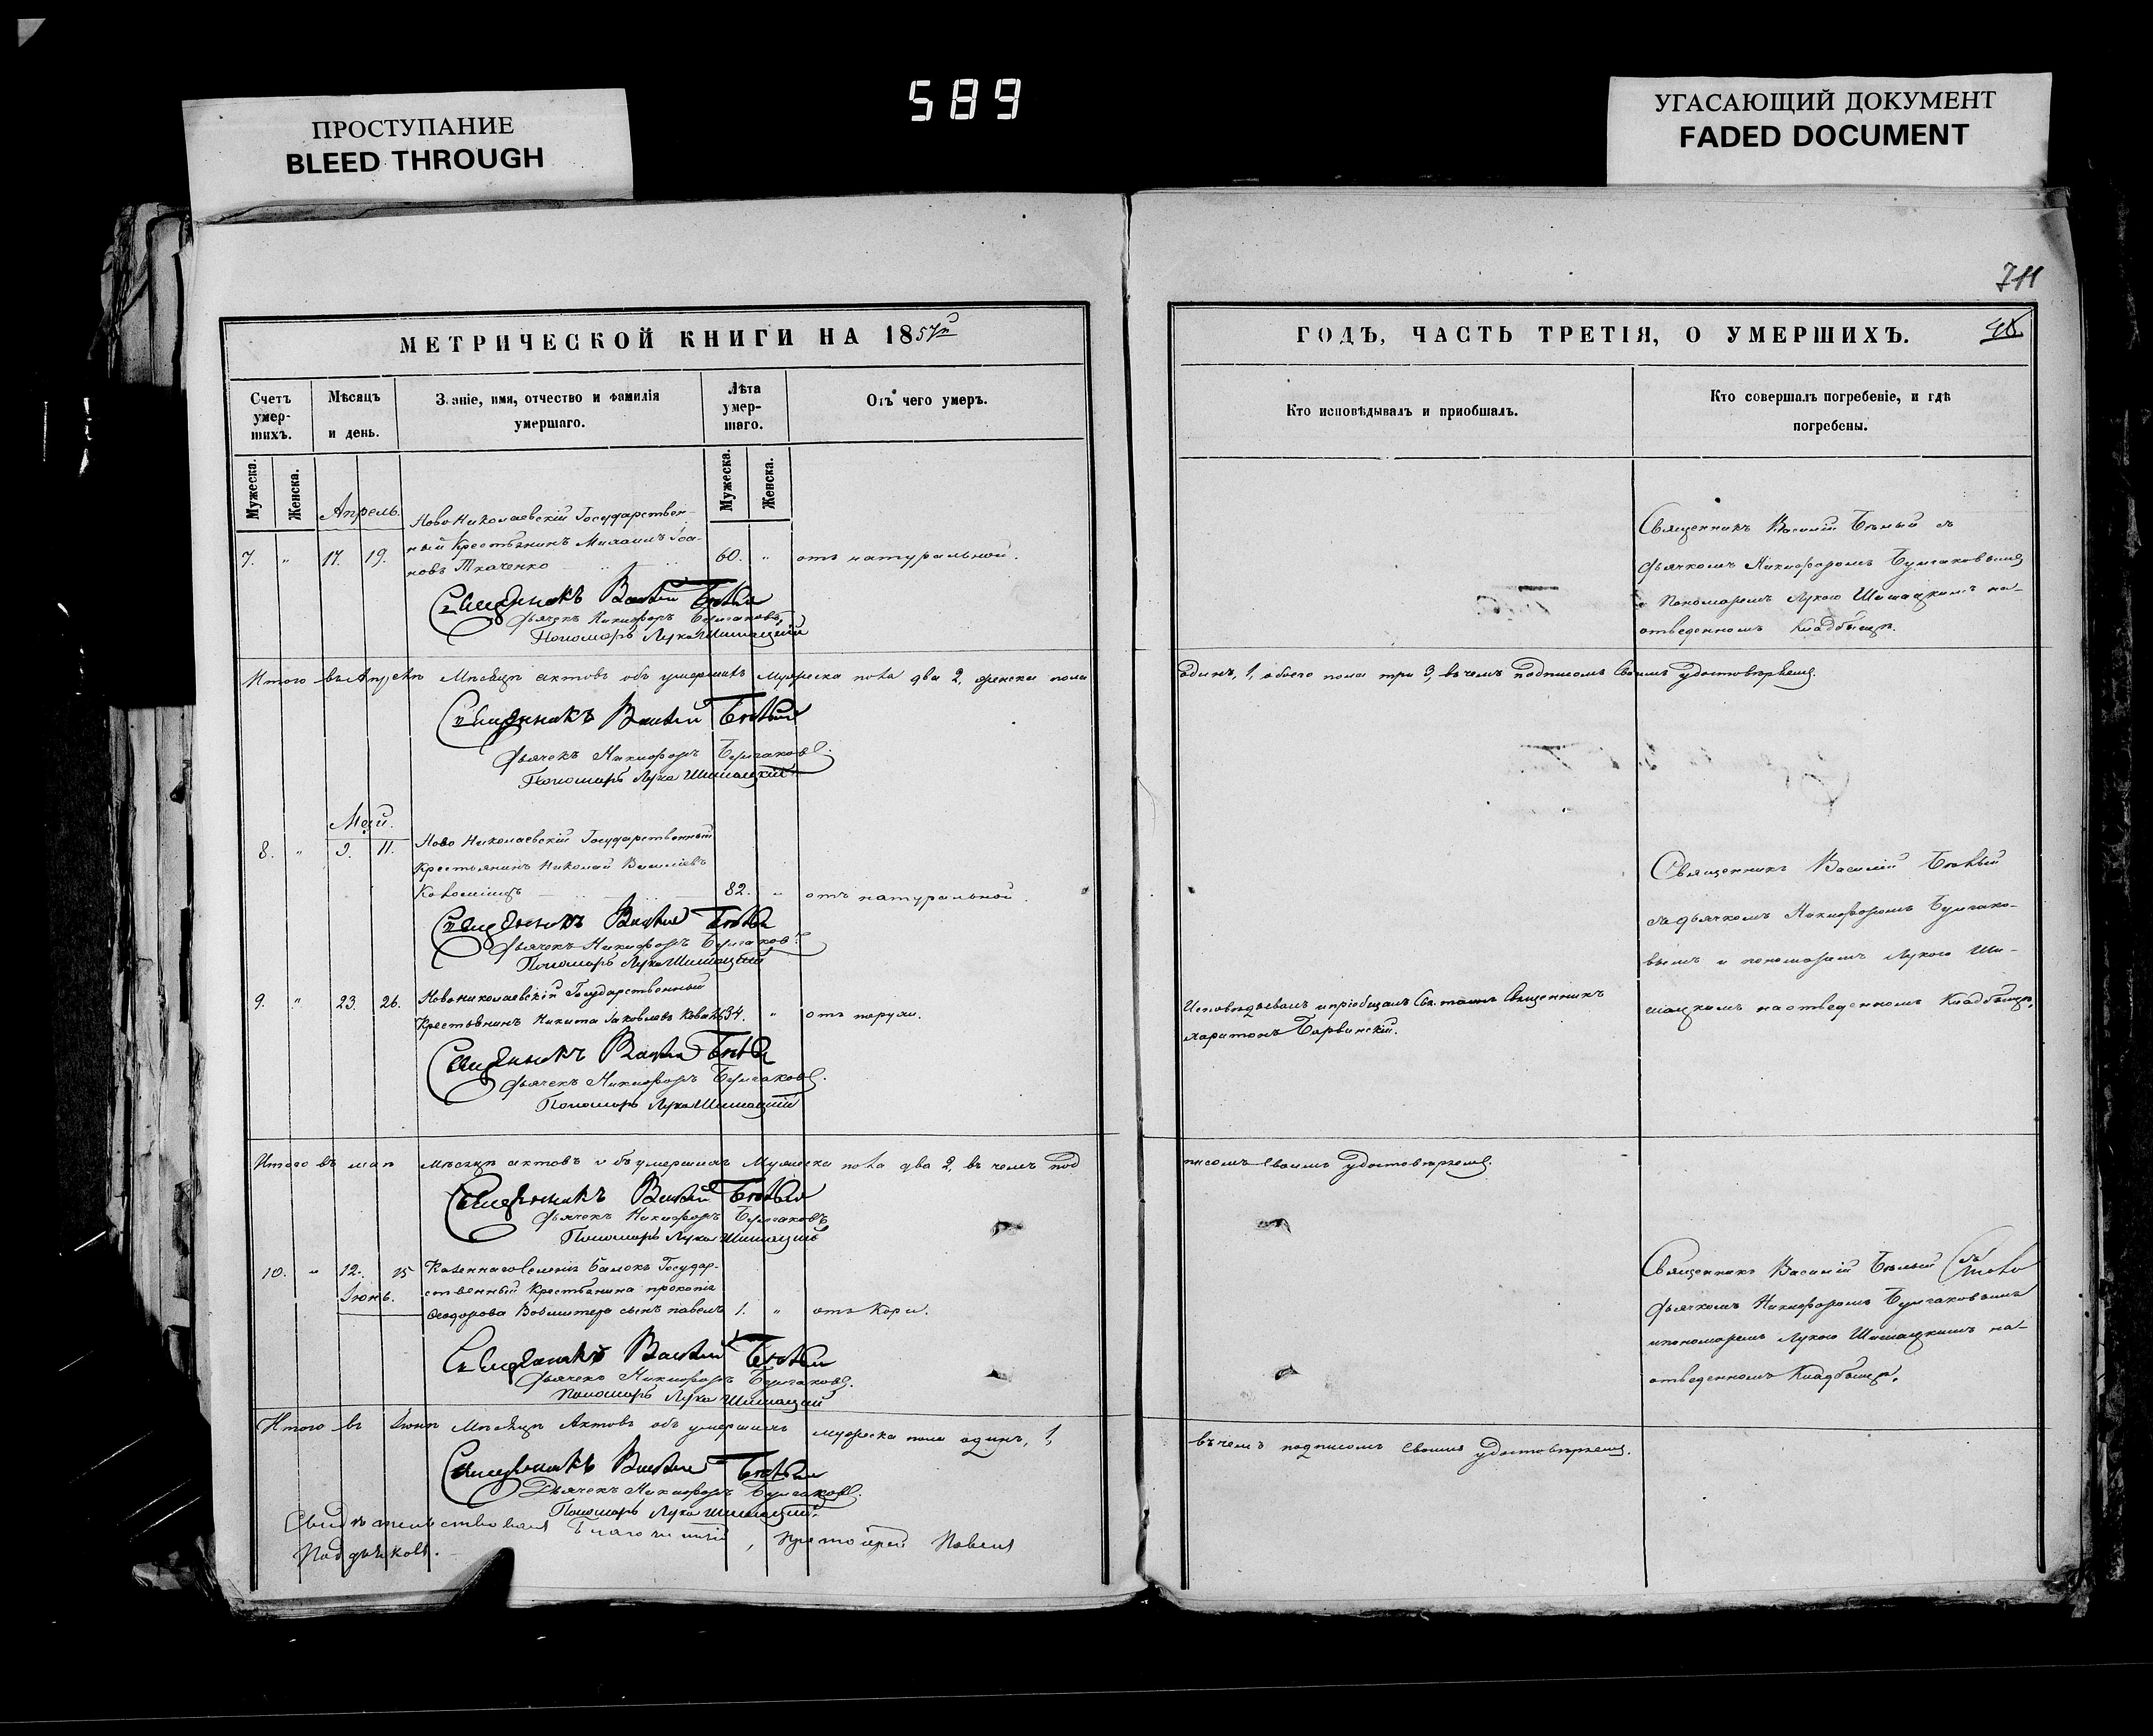 589
ПРОСТУПАНИЕ
BLEED THROUGH
УГАСАЮЩИЙ ДОКУМЕНТ
FADED DOCUMENT
711
МЕТРИЧЕСКОЙ КНИГИ НА 1857й
Счетъ умерших.
Мѣсяцъ и день.
Званіе, имя, отчество и фамилія умершаго.
Лѣта умершаго.
Отъ чего умеръ.
Мужеска.
Женска.
Мужеска.
Женска.
Апрель.
Ново Николаевскій Государствен-
7. " 17. 19. ный Крестьянинъ Михаилъ Іоа- 60. " отъ натуральной.
новъ Ткаченко
Священникъ Василій Бѣлый
Дьячекъ Никифоръ Булгаковъ
Пономарь Лука Шишацкій
Итого въ Апрелѣ Мѣсяцѣ актовъ объ умершихъ Мужеска пола два 2, женска пола
Священникъ Василій Бѣлый
Дьячекъ Никифоръ Булгаковъ.
Пономарь Лука Шишацкій
Май.
8. " 9. 11. Ново Николаевскій Государственный
Крестьянинъ Николай Василіевъ
82. " отъ натуральной.
Священникъ Василій Бѣлый
Дьячекъ Никифоръ Булгаковъ
Пономарь Лука Шишацкій
9. " 23. 26. Новониколаевскій Государственный
Крестьянинъ Никита Іаковлевъ 34. "
Священникъ Василій Бѣлый
Дьячекъ Никифоръ Булгаковъ.
Пономарь Лука Шишацкій
Итого въ маѣ мѣсяцѣ актовъ объ умершихъ Мужеска пола два 2, въ чемъ под
Священникъ Василій Бѣлый
Дьячекъ Никифоръ Булгаковъ
Пономарь Лука Шишацкій
10. " 12. 15 Казеннаго Селенія Балокъ Государ-
Іюнь. ственный Крестьянина прокопія
Ѳеодорова сынъ павелъ 1. " отъ Кори.
Священникъ Василій Бѣлый
Дьячекъ Никифоръ Булгаковъ.
Пономарь Лука Шишацкій
Итого въ Іюнѣ Мѣсяцѣ Актовъ объ умершихъ мужеска пола одинъ, 1,
Священникъ Василій Бѣлый
Дьячекъ Никифоръ Булгаковъ.
Пономарь Лука Шишацкій.
Свидѣтельствовалъ Благочинный, Протоіерей Павелъ
ГОДЪ, ЧАСТЬ ТРЕТІЯ, О УМЕРШИХЪ.
Кто исповѣдывалъ и приобщалъ.
Кто совершалъ погребеніе, и гдѣ
погребены.
Священникъ Василій Бѣлый съ
Дьячкомъ Никифоромъ Булгаковымъ
и Пономаремъ Лукою Шишацкимъ на-
отведенномъ Кладбищѣ.
одинъ, 1, обоего пола три 3, въ чемъ подписомъ Своимъ удостовѣряемъ.
Священникъ Василій Бѣлый
съ дьячкомъ Никифоромъ Булгако-
вымъ и пономаремъ Лукою Ши-
шацкимъ на отведенномъ Кладбищѣ.
Исповѣдывалъ и пріобщалъ Св. таинъ Священникъ
харитонъ Барвинскій.
писомъ Своимъ удостовѣряемъ.
Священникъ Василій Бѣлый съ
Дьячкомъ Никифоромъ Булгаковымъ
и пономаремъ Лукою Шишацкимъ на-
отведенномъ Кладбищѣ.
въ чемъ подписомъ Своимъ удостовѣряемъ.